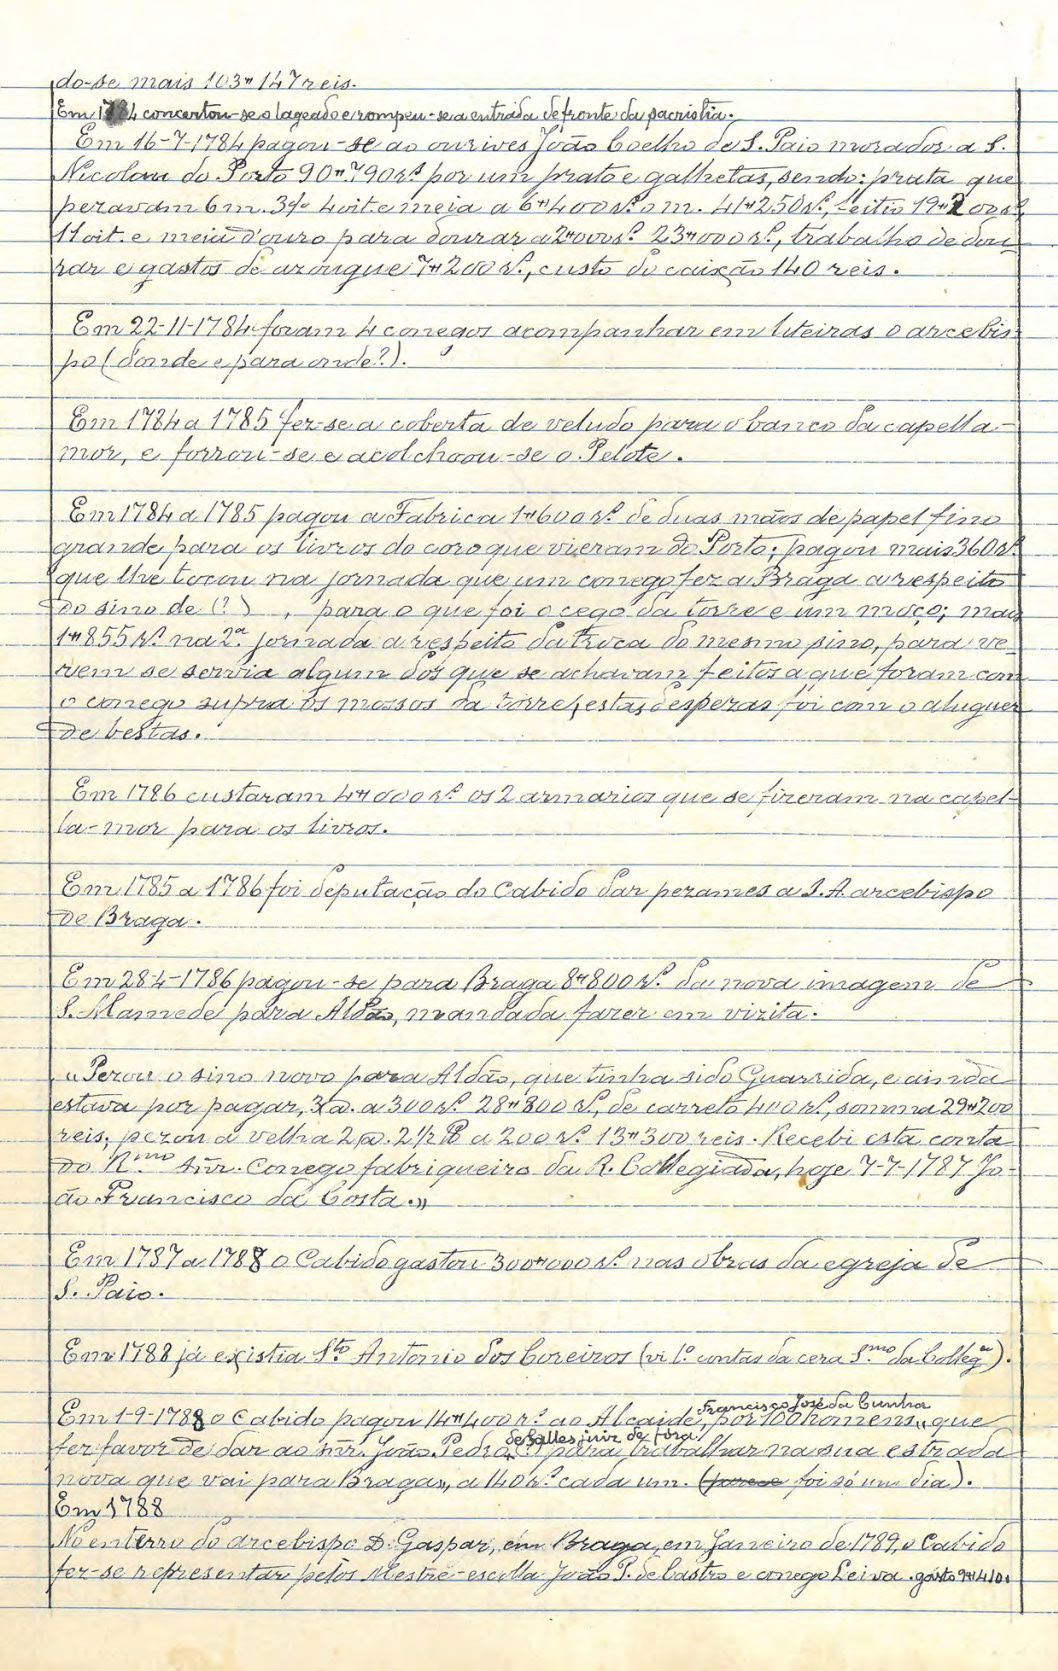 do-se mais 103"147 reis.
Em 1784 concertou-se o lageado e rompeu-se a entrada defronte da sacristia.
Em 16-7-1784 pagou-se ao ourives João Coelho de S. Paio morador a S.
Nicolau do Porto 90"790 rs. por um prato e galhetas, sendo: prata que
pezavam 6 m. 3 4 oit. e meia a 6"400 rs. o m. 41"250 rs., feitio 19"200 rs.
11 oit. e meia d'ouro para dourar a 2"000 rs. 23"000 rs., trabalho de dou-
rar e gastos de azougue 7"200 rs., custo do caixão 140 reis.
Em 22-11-1784 foram 4 conegos acompanhar em liteiras o arcebis-
po (donde e para onde?).
Em 1784 a 1785 fez-se a coberta de veludo para o banco da capella-
mor, e forrou-se e acolchoou-se o Pelote.
Em 1784 a 1785 pagou a Fabrica 1"600 rs. de duas mãos de papel fino
grande para os livros do coro que vieram do Porto; pagou mais 360 rs.
que lhe tocou na jornada que um conego fez a Braga a respeito
do sino de (?) , para o que foi o cego da torre e um moço; mais
1"855 rs. na 2.ª jornada a respeito da troca do mesmo sino, para ve-
rem se servia algum dos que se achavam feitos a que foram com
o conego supra os mossos da torre, estas despezas foi com o aluguer
de bestas.
Em 1786 custaram 4"000 rs. os 2 armarios que se fizeram na capel-
la-mor para os livros.
Em 1785 a 1786 foi deputação do Cabido dar pezames a S. A. arcebispo
de Braga.
Em 28-4-1786 pagou-se para Braga 8"800 rs. da nova imagem de
S. Mamede para Aldão, mandada fazer em vizita.
"Pezou o sino novo para Aldão, que tinha sido Guarrida, e ainda
estava por pagar, 3 @. a 300 rs. 28"800 rs., de carreto 400 rs., somma 29"200
reis; pezou a velha 2 @. 2 1/2 a 200 rs. 13"300 reis. Recebi esta conta
do R.mo Snr. Conego fabriqueiro da R. Collegiada, hoje 7-7-1787 Jo-
ão Francisco da Costa."
Em 1787 a 1788 o Cabido gastou 300"000 rs. nas obras da egreja de
S. Paio.
Em 1788 já existia S.to Antonio dos Coreiros (vi l.º contas da cera S.mo da Colleg.ª).
Francisco José da Cunha
Em 1-9-1788 o Cabido pagou 14"400 rs. ao Alcaide, por 100 homens "que
de Salles, juiz de fóra
fez favor de dar ao snr. João Pedro (?) para trabalhar na sua estrada
nova que vai para Braga", a 140 rs. cada um. (parece foi só um dia).
Em 1788
No enterro do arcebispo D. Gaspar, em Braga, em Janeiro de 1789, o Cabido
fez-se representar pelos Mestre-escola João P. de Castro e conego Leiva. gasto 9"410.